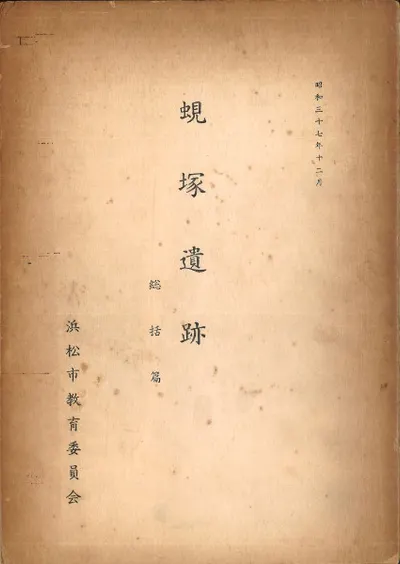 昭和三十七年十二月
蜆塚遺跡
総括篇
浜松市教育委員会